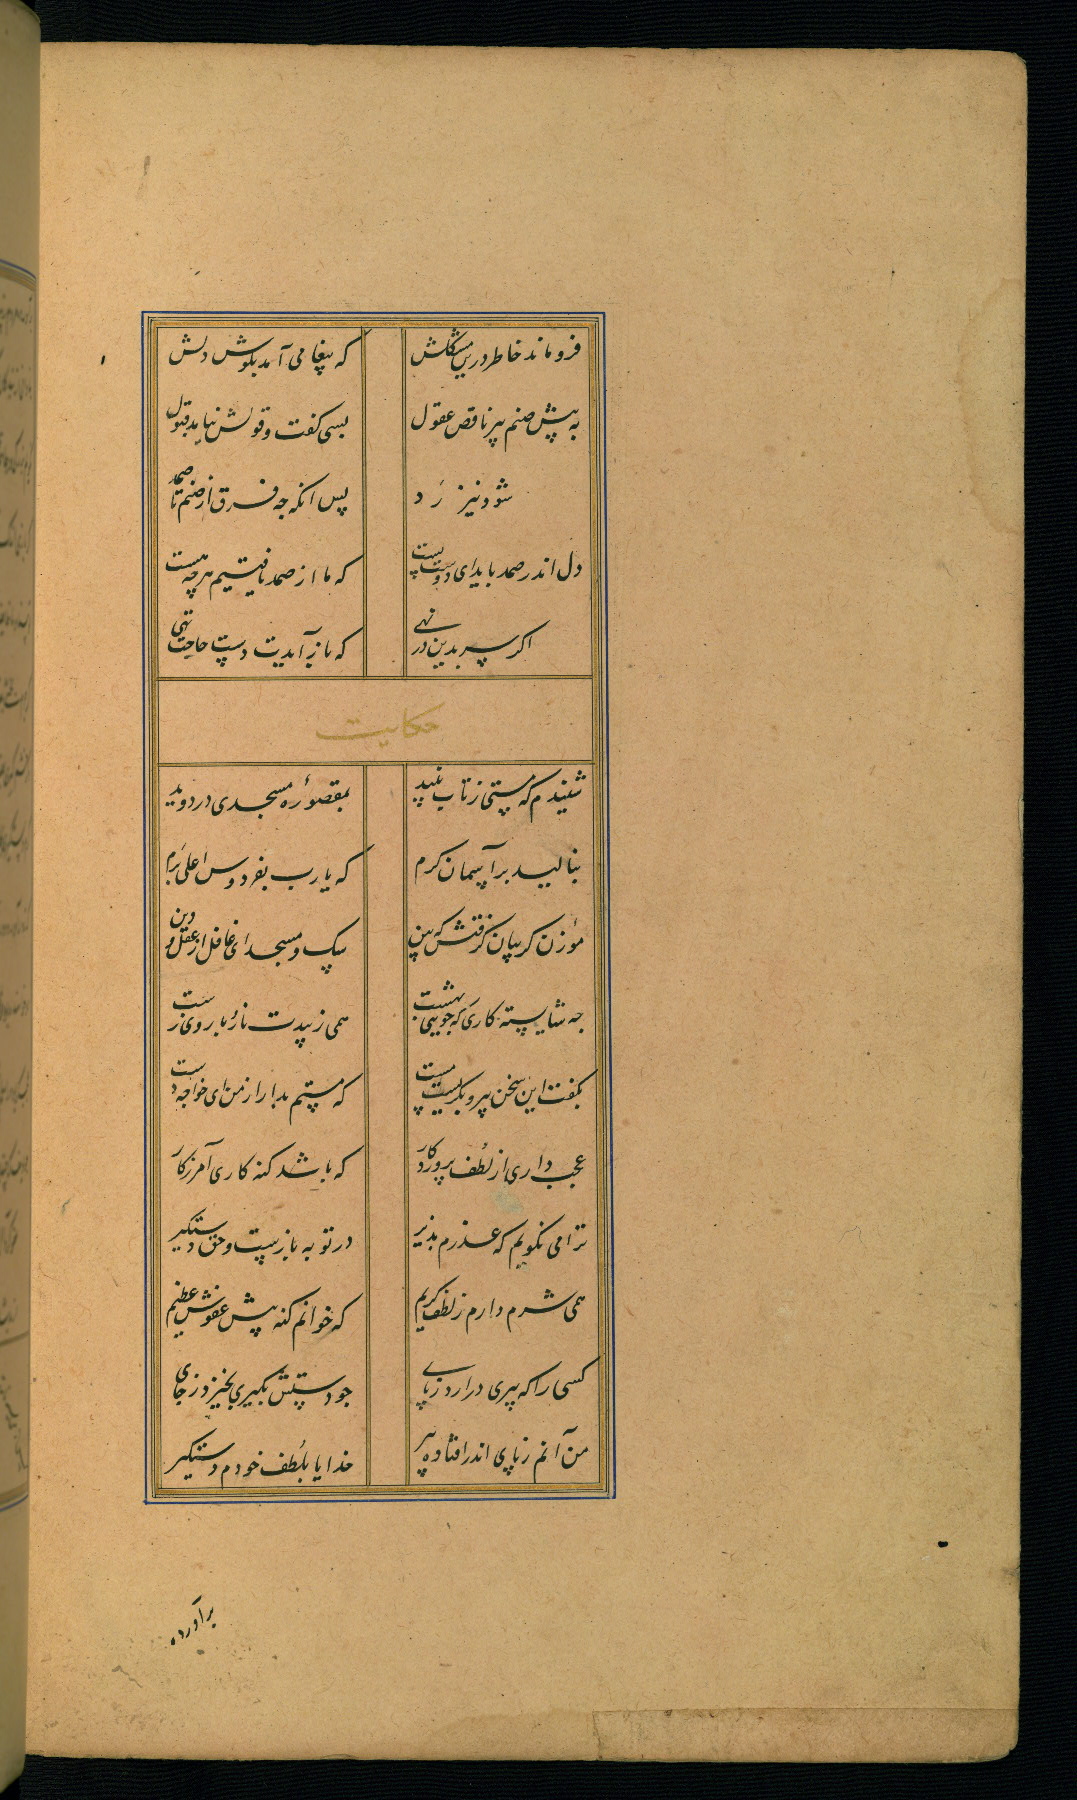 فروماند خاطر درین مشکلش که پیغامی آمد بکوش دلش
به پیش صنم پیر ناقص عقول بسی کفت و قولش نیامد قبول
شود نیز رد پس انکه جه فرق از صنم تا صمد
دل اندر صمد باید ای دوست بست که ما از صمد یافتیم هر چه هست
اکر سر بدین در نهی که باز آیدیت دست حاجت تهی
حکایت
شنیدم که مستی ز تاب نبید بمقصورۀ مسجدی در دوید
بنالید بر آسمان کرم که یارب بفردوس اعلی برم
مؤزن کریبان کرفتش که هین سک و مسجد ای غافل از عقل و دین
جه شایسته کاری که جویی بهشت همی زیبدت ناز با روی زشت
بکفت این سخن پیر و بکریست مست که مستم بدار از من ای خواجه دست
عجب داری از لطف پروردکار که باشد کنه کاری آمرزکار
ترا می نکویم که عذرم پذیر در توبه بازست و حق دستکیر
همی شرم دارم ز لطف کریم که خوانم کنه پیش عفوش عظیم
کسی را که پیری درارد ز پای جو دستش نکیری نخیزد ز جای
من آنم ز پای اندر افتاده پیر خدایا بلطف خودم دستکیر
برآورده